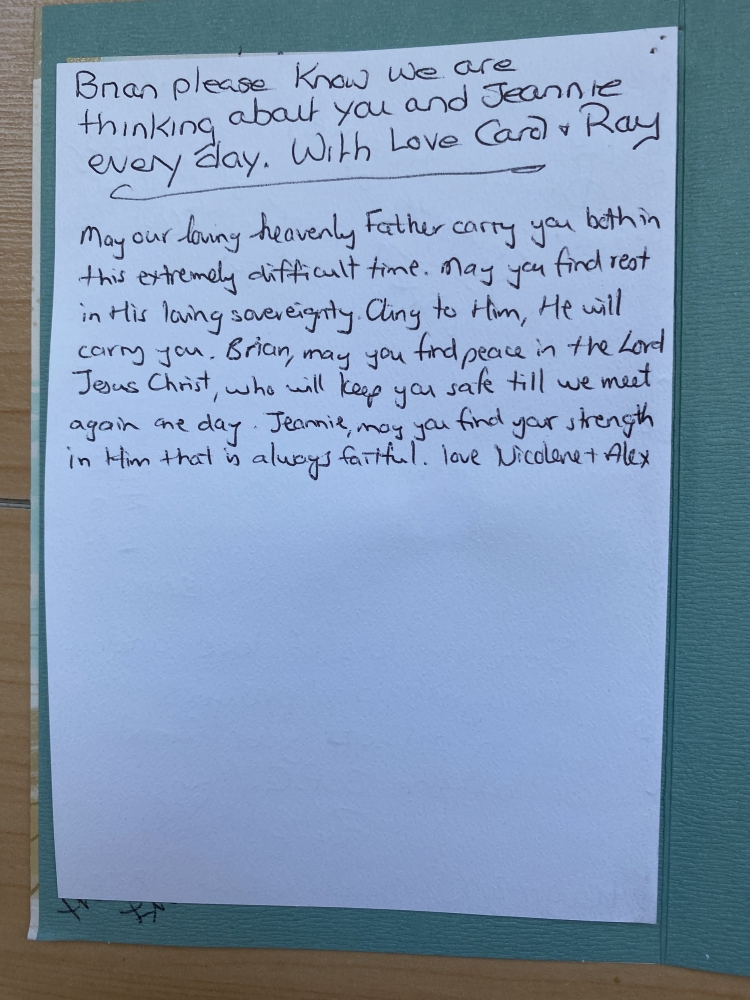 Brian please know we are
thinking about you and Jeannie
every day. With Love Carol + Ray
May our loving heavenly Father carry you both in
this extremely difficult time. May you find rest
in His loving sovereignty. Cling to Him, He will
carry you. Brian, may you find peace in the Lord
Jesus Christ, who will keep you safe till we meet
again one day. Jeannie, may you find your strength
in Him that is always faithful. love Nicolene + Alex